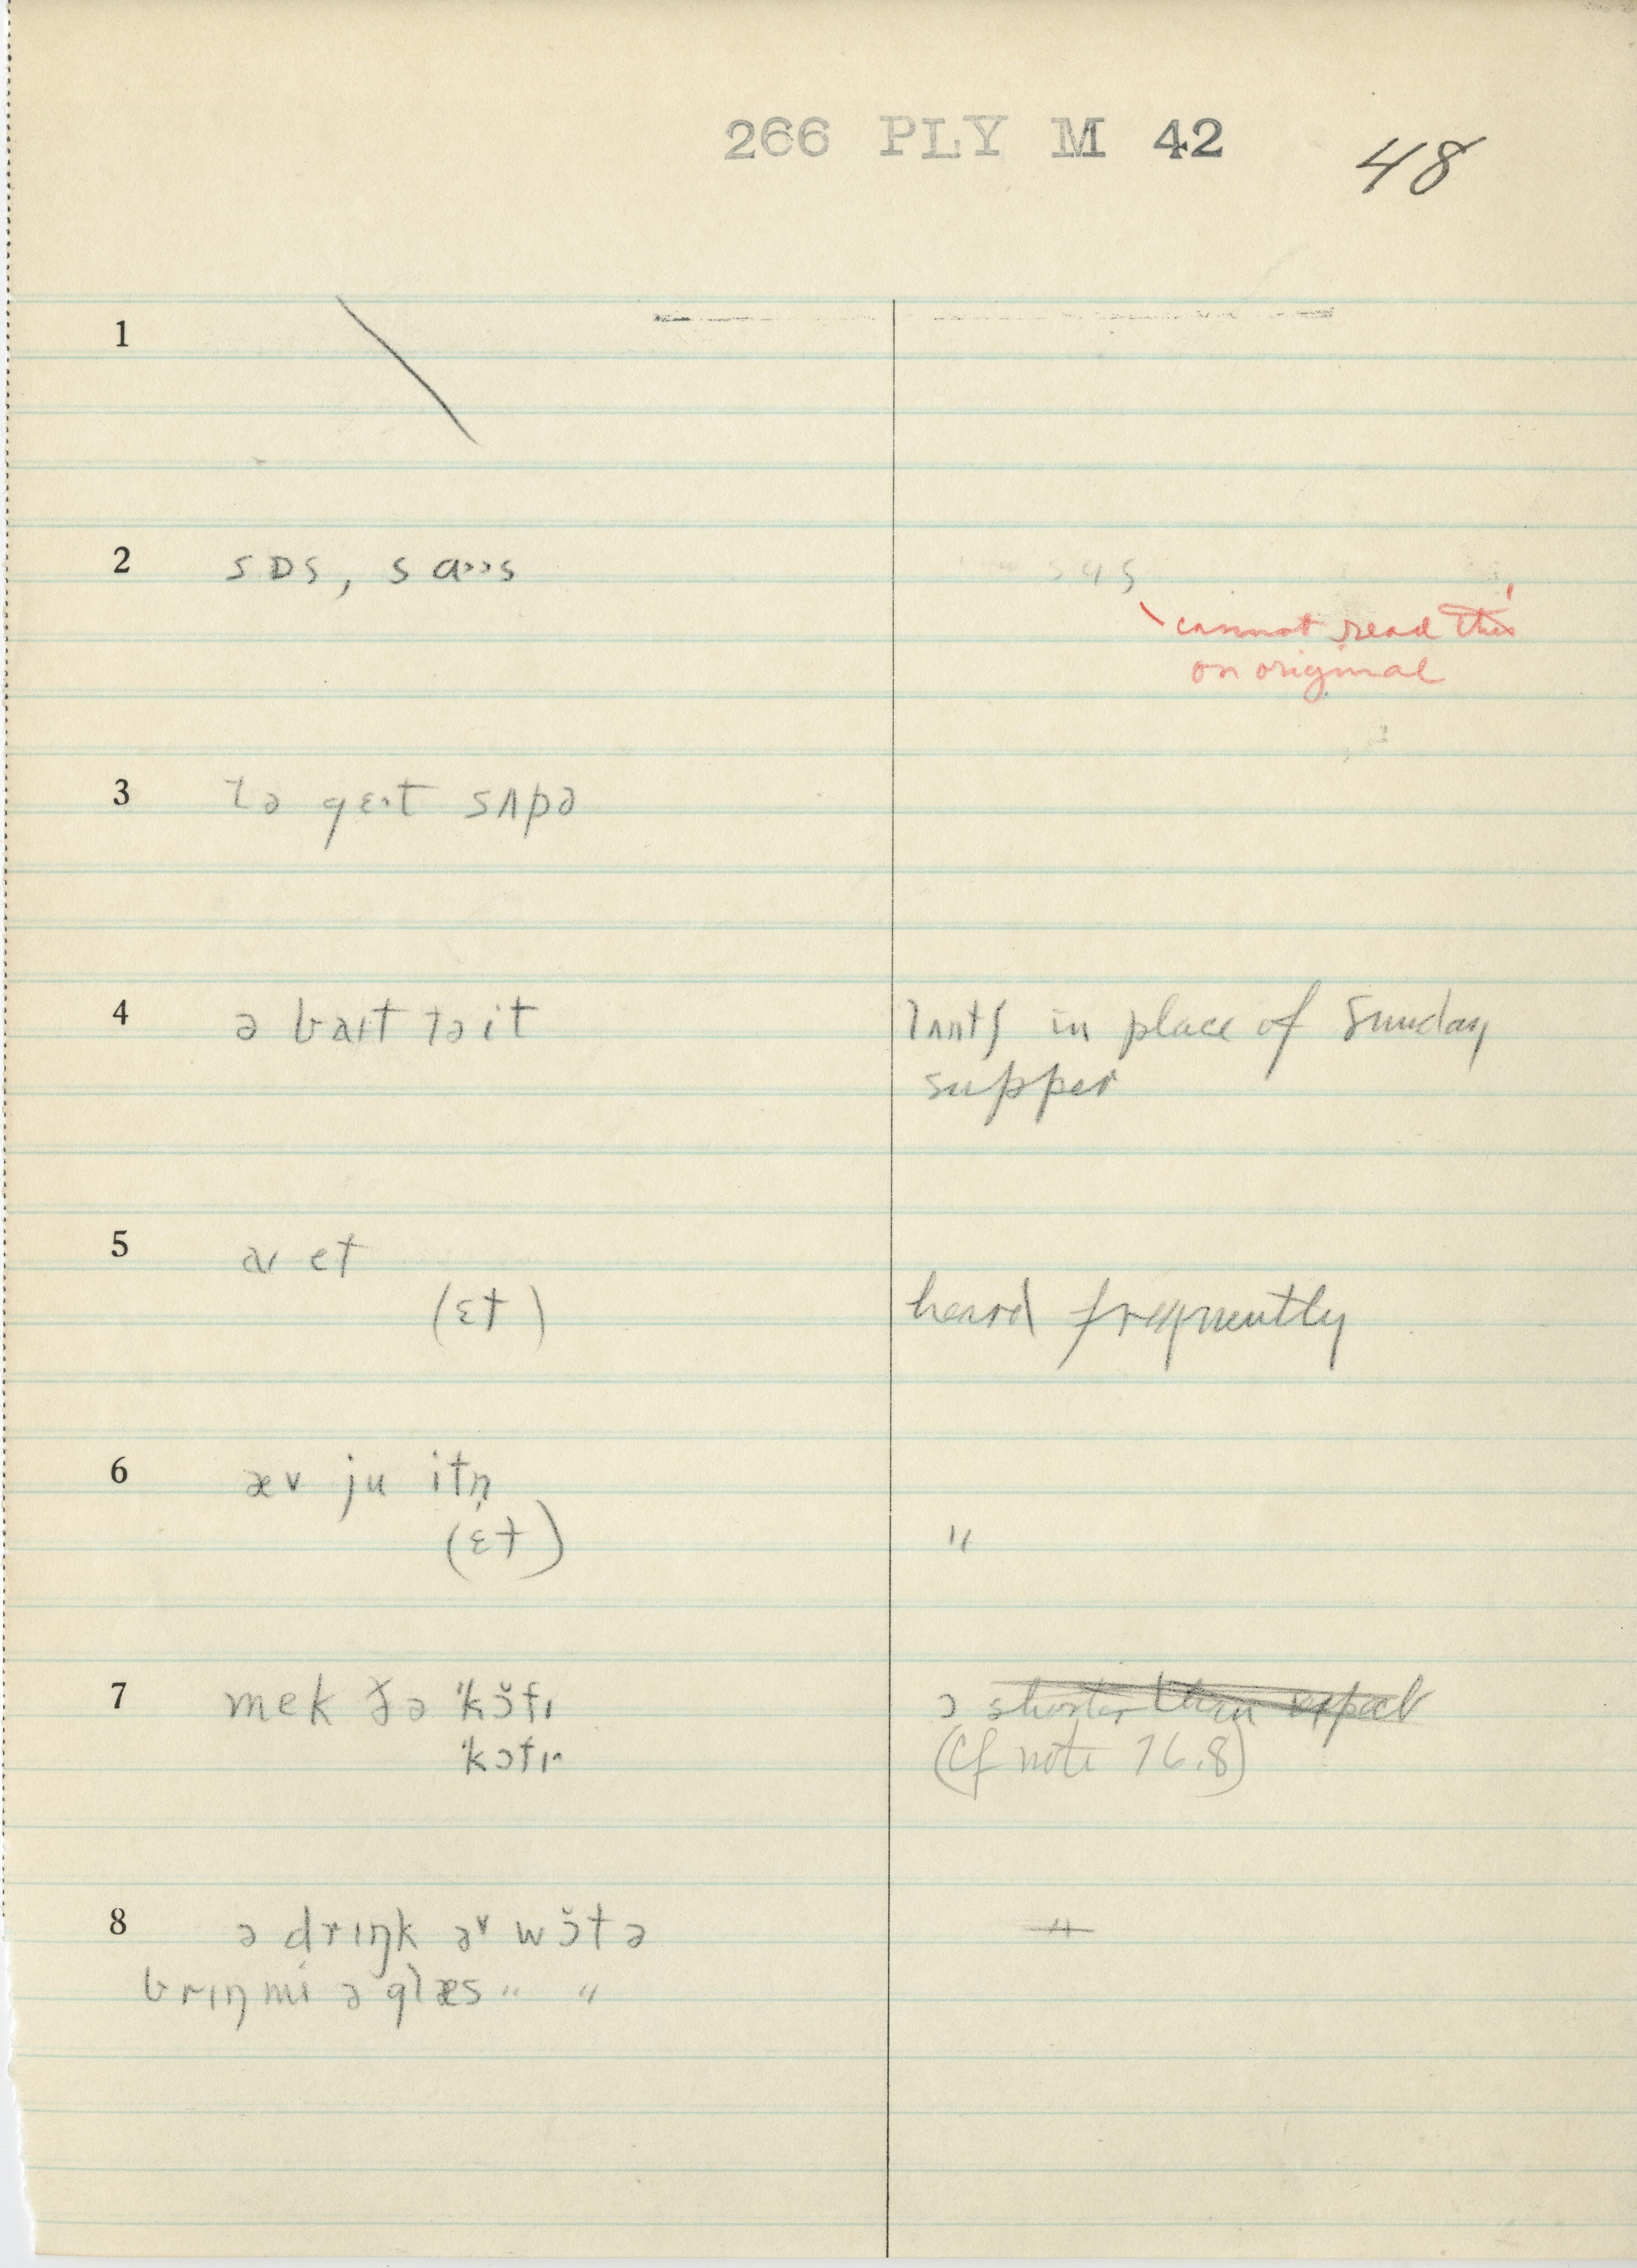 266 PLY M 42
48
1
2 sɒs, sɑˑˑs
cannot read this
on original
3 tə gɛˑt sʌpə
4 ə baɪt tə it lʌntʃ in place of Sunday
supper
5 aɪ et
(ɛt) heard frequently
6 æv ju itn̩
(ɛt) "
7 mek ðə ˈkɔ̆fɪ ɔ shorter than expect
ˈkɔfɪ (Cf note 76.8)
8 ə drɪŋk əv wɔ̆tə "
brɪŋ mi ə glæs " "